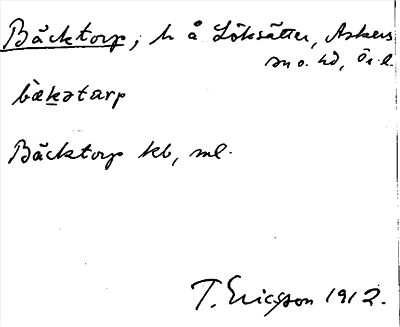 Bäcktorp, h å Löksätter, Askers
sn o. hd, Ör. l.
bækətarp
Bäcktorp kb, ml.
T. Ericsson 1912.